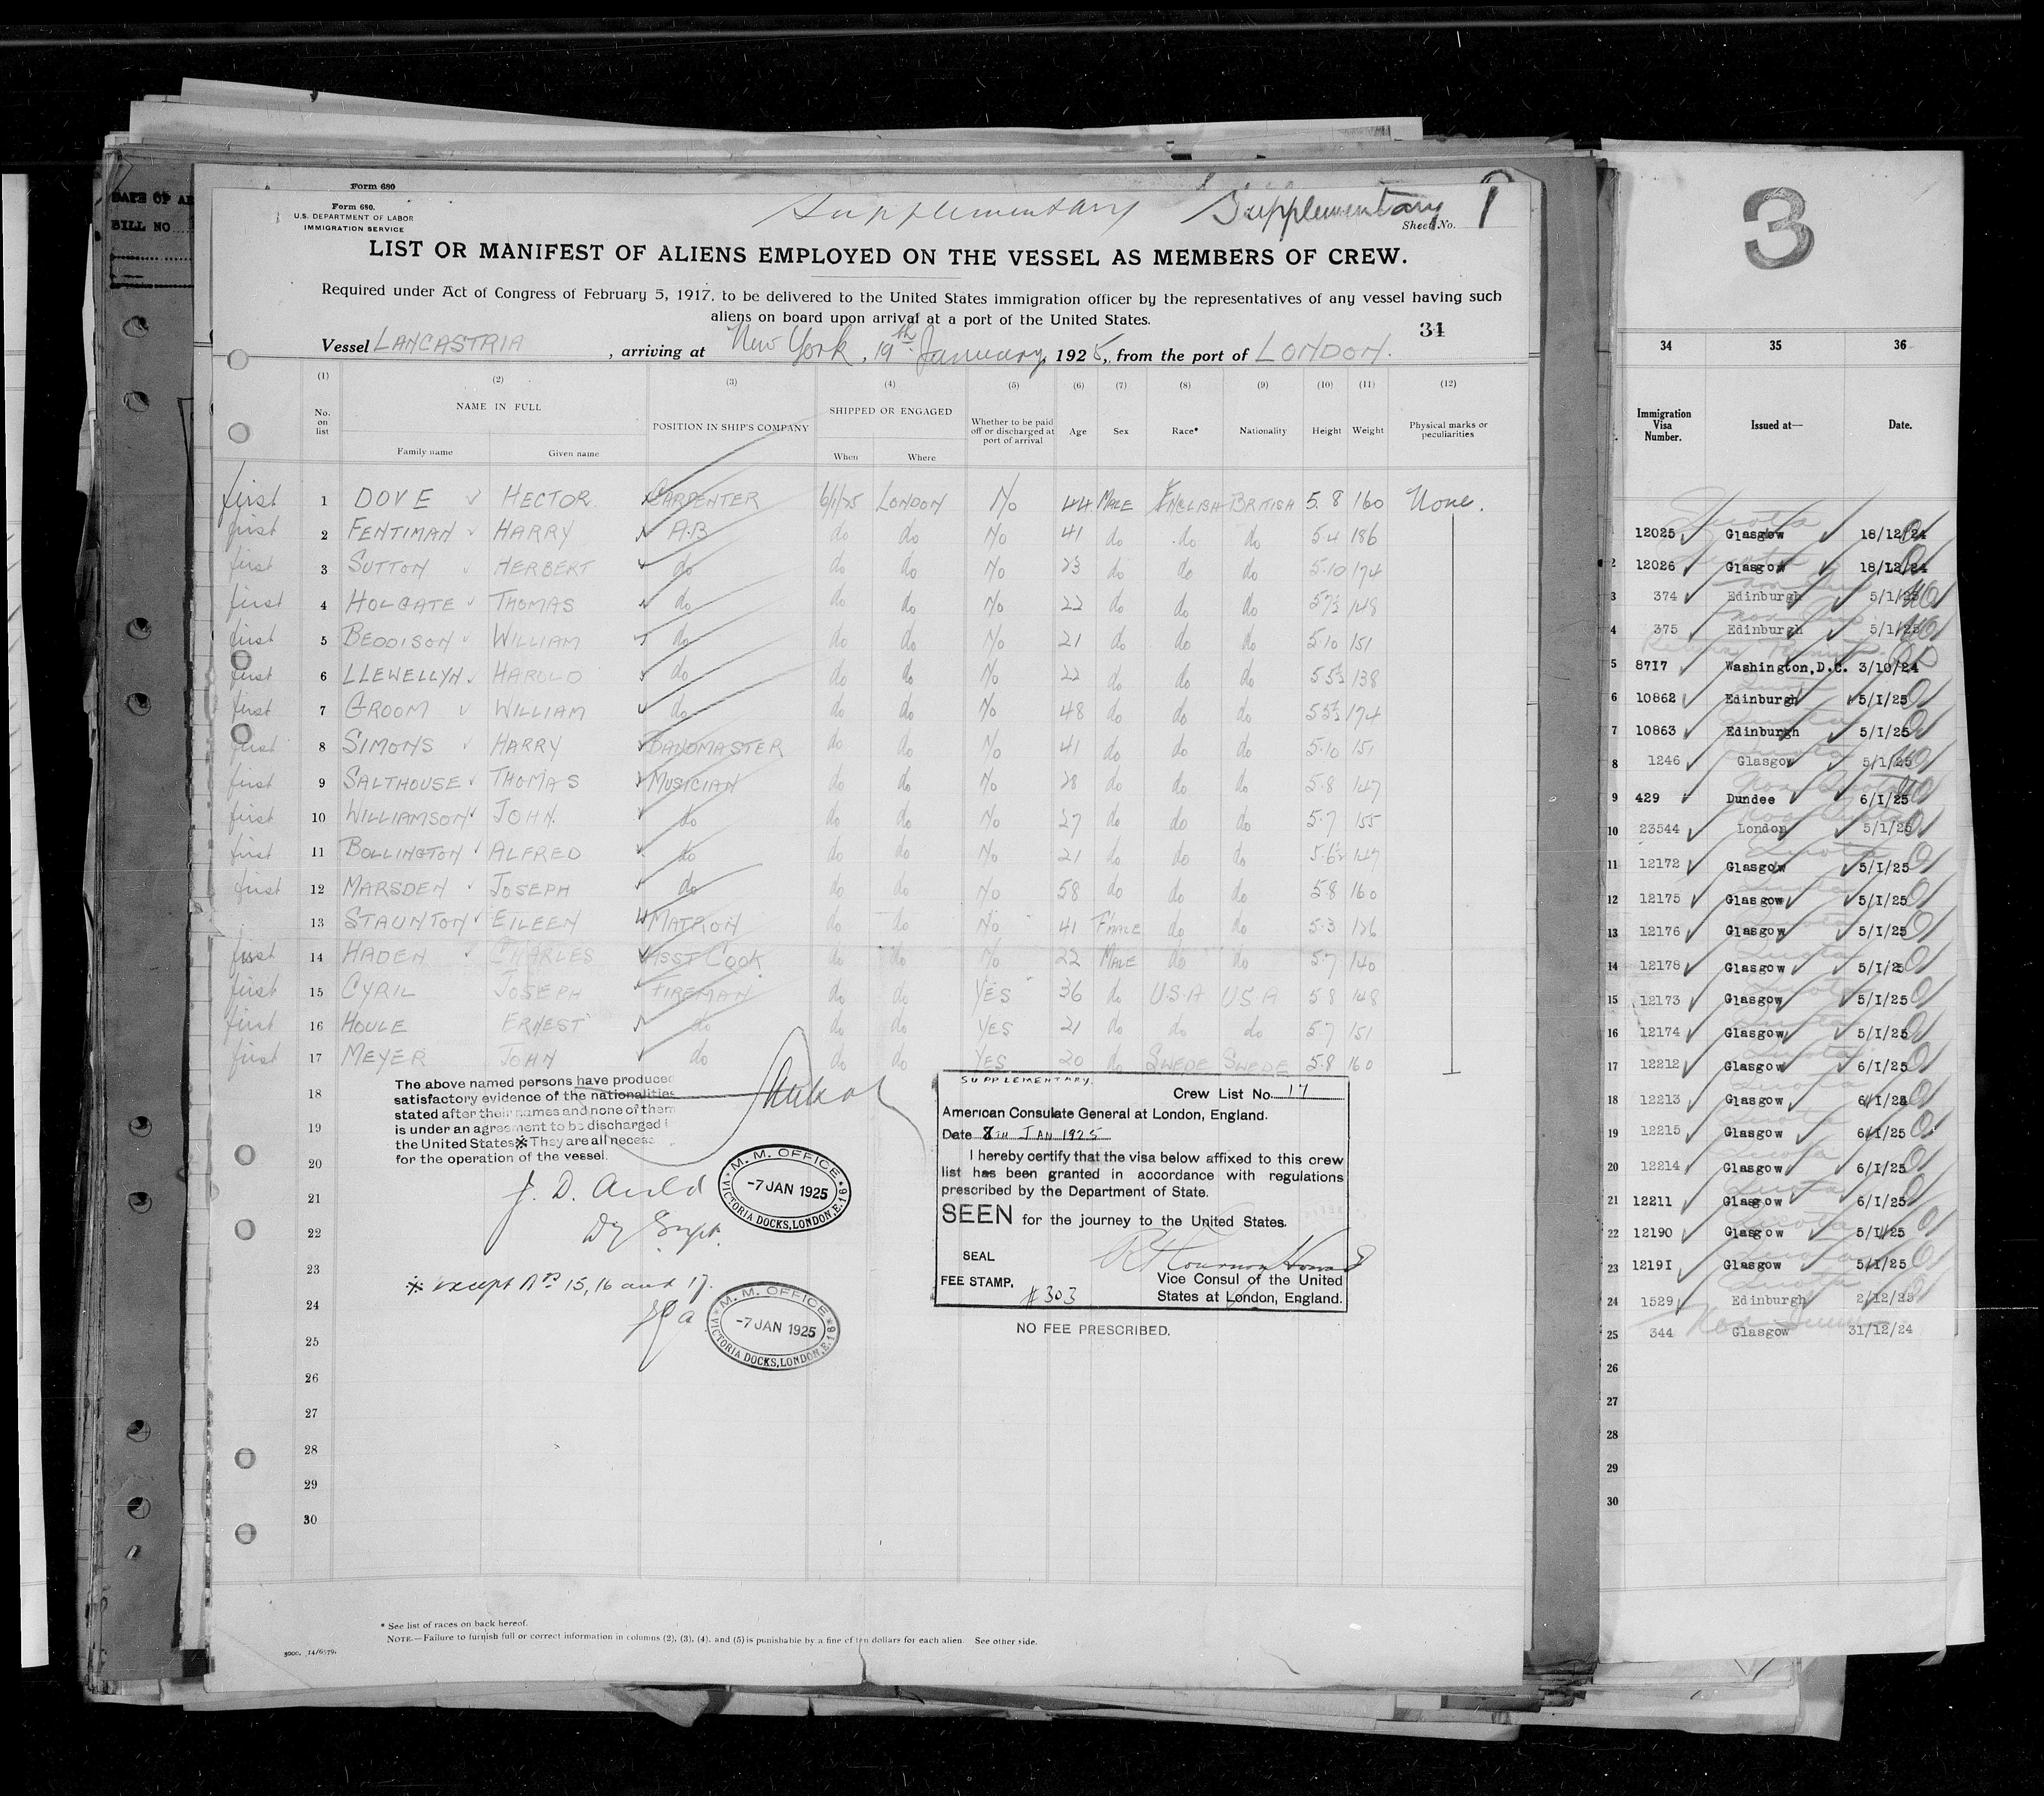 DATE OF
BILL NO
Form 680
Form 680.
U.S. DEPARTMENT OF LABOR
IMMIGRATION SERVICE
Supplementary Supplementary
Sheet No. 1
LIST OR MANIFEST OF ALIENS EMPLOYED ON THE VESSEL AS MEMBERS OF CREW.
Required under Act of Congress of February 5, 1917, to be delivered to the United States immigration officer by the representatives of any vessel having such
aliens on board upon arrival at a port of the United States.
34
Vessel LANCASTRIA, arriving at New York, 19th January, 1925, from the port of LONDON.
(1) (2) (3) (4) (5) (6) (7) (8) (9) (10) (11) (12)
No. on list NAME IN FULL POSITION IN SHIP'S COMPANY SHIPPED OR ENGAGED Whether to be paid off or discharged at port of arrival Age Sex Race* Nationality Height Weight Physical marks or peculiarities
Family name Given name When Where
first 1 DOVE HECTOR CARPENTER 6/1/25 LONDON No 44 MALE ENGLISH BRITISH 5.8 160 None.
first 2 FENTIMAN HARRY A.B do do No 41 do do do 5.4 186
first 3 SUTTON HERBERT do do do No 23 do do do 5.10 174
first 4 HOLGATE THOMAS do do do No 22 do do do 5 7½ 148
first 5 BEDDISON WILLIAM do do do No 21 do do do 5.10 151
first 6 LLEWELLYN HAROLD do do do No 22 do do do 5 5½ 138
first 7 GROOM WILLIAM do do do No 48 do do do 5 5½ 174
first 8 SIMONS HARRY BANDMASTER do do No 41 do do do 5.10 151
first 9 SALTHOUSE THOMAS MUSICIAN do do No 28 do do do 5.8 147
first 10 WILLIAMSON JOHN do do do No 27 do do do 5.7 155
first 11 BOLLINGTON ALFRED do do do No 21 do do do 5.6½ 147
first 12 MARSDEN JOSEPH do do do No 58 do do do 5.8 160
13 STAUNTON EILEEN MATRON do do No 41 F'MALE do do 5.3 126
first 14 HADEN CHARLES ASST COOK do do No 22 MALE do do 5.7 140
first 15 CYRIL JOSEPH FIREMAN do do YES 36 do U.S.A USA 5 8 148
first 16 HOULE ERNEST do do do YES 21 do do do 5 7 151
first 17 MEYER JOHN do do do YES 20 do SWEDE SWEDE 5.8 160
18
19
20
21
22
23
24
25
26
27
28
29
30
The above named persons have produced
satisfactory evidence of the nationalities
stated after their names and none of them
is under an agreement to be discharged
the United States ※ They are all
for the operation of the vessel.
J. D. Auld
Dy Supt.
M. M. OFFICE
-7 JAN 1925
VICTORIA DOCKS, LONDON, E.16
※ except Nos 15, 16 and 17.
M. M. OFFICE
-7 JAN 1925
VICTORIA DOCKS, LONDON, E.16
SUPPLEMENTARY.
Crew List No. 17
American Consulate General at London, England.
Date 8TH JAN 1925
I hereby certify that the visa below affixed to this crew
list has been granted in accordance with regulations
prescribed by the Department of State.
SEEN for the journey to the United States.
SEAL
FEE STAMP. # 303
Vice Consul of the United
States at London, England.
NO FEE PRESCRIBED.
* See list of races on back hereof.
NOTE.—Failure to furnish full or correct information in columns (2), (3), (4), and (5) is punishable by a fine of ten dollars for each alien. See other side.
3
34 35 36
Immigration Visa Number. Issued at— Date.
12025 Glasgow 18/12/24
2 12026 Glasgow 18/12/24
3 374 Edinburgh 5/1/25
4 375 Edinburgh 5/1/25
5 8717 Washington,D.C. 3/10/24
6 10862 Edinburgh 5/1/25
7 10863 Edinburgh 5/1/25
8 1246 Glasgow 5/1/25
9 429 Dundee 6/1/25
10 23544 London 5/1/25
11 12172 Glasgow 5/1/25
12 12175 Glasgow 5/1/25
13 12176 Glasgow 5/1/25
14 12178 Glasgow 5/1/25
15 12173 Glasgow 5/1/25
16 12174 Glasgow 5/1/25
17 12212 Glasgow 6/1/25
18 12213 Glasgow 6/1/25
19 12215 Glasgow 6/1/25
20 12214 Glasgow 6/1/25
21 12211 Glasgow 6/1/25
22 12190 Glasgow 5/1/25
23 12191 Glasgow 5/1/25
24 1529 Edinburgh 2/12/25
25 344 Glasgow 31/12/24
26
27
28
29
30